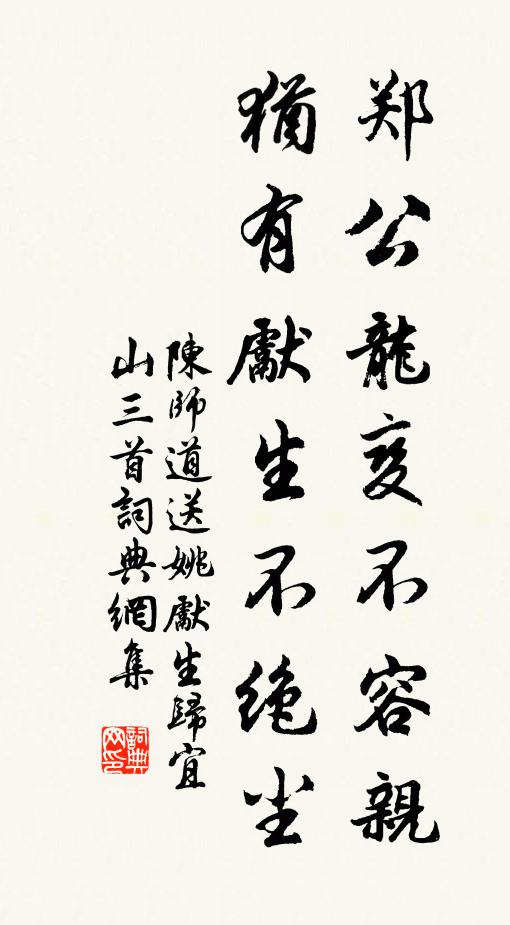 郑公龍变不容親
猶有獻生不绝尘
陳師道送姚獻生歸宜
山三首詞典網集
詞典网印